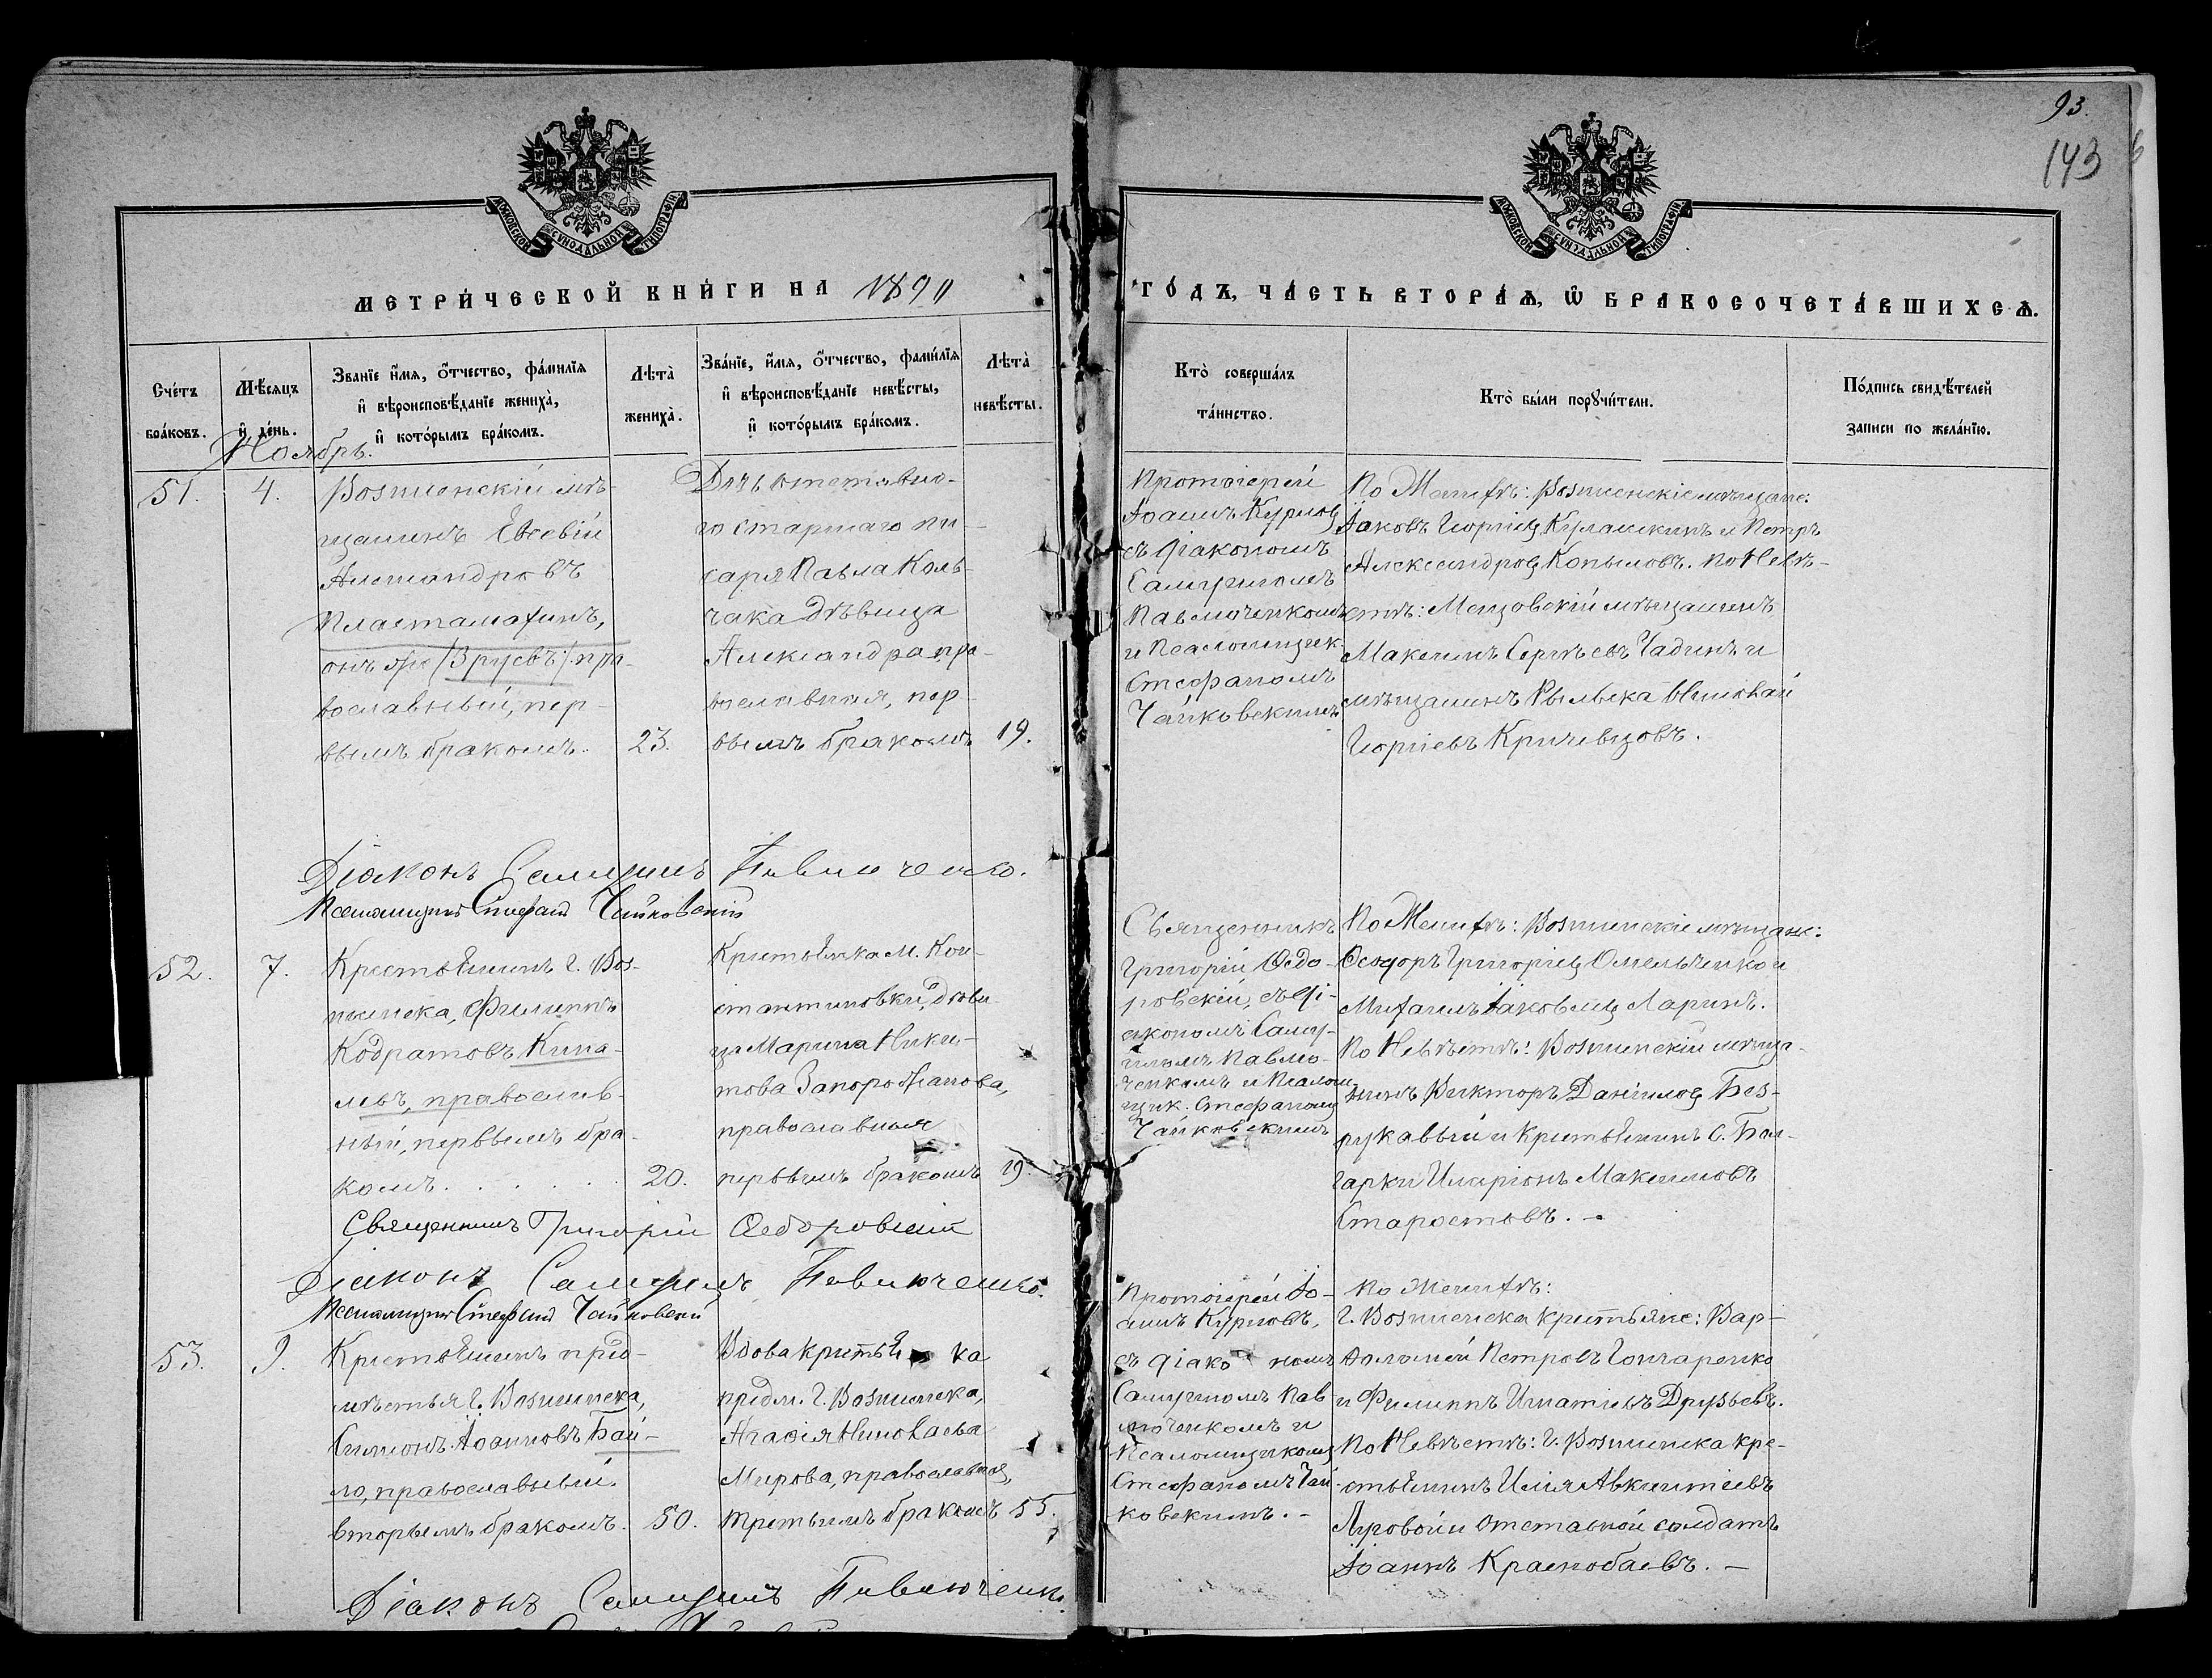 93.
143
МОСКОВСКОЙ СѴНОДАЛЬНОЙ ТИПОГРАФІИ
МОСКОВСКОЙ СѴНОДАЛЬНОЙ ТИПОГРАФІИ
МЕТРИ́ЧЕСКОЙ КНИ́ГИ НА 1890
ГО́ДЪ, ЧА́СТЬ ВТОРА́Ѧ, Ѡ҆ БРАКОСОЧЕТА́ВШИХСѦ.
Сче́тъ
бра́ковъ.
Мѣ́сяцъ
и҆ де́нь.
Зва́нїе и҆́мя, ѻ҆́тчество, фами́лїя
и҆ вѣроисповѣ́данїе жениха̀,
и҆ кото́рымъ бра́комъ.
Лѣта̀
жениха̀.
Зва́нїе, и҆́мя, ѻ҆́тчество, фами́лїя
и҆ вѣроисповѣ́данїе невѣ́сты,
и҆ кото́рымъ бра́комъ.
Лѣта̀
невѣ́сты.
Кто̀ соверша́лъ
та́инство.
Кто̀ бы́ли порꙋчи́тели.
По́дпись свидѣ́телей
записи по жела́нїю.
Ноябрь.
51.
4.
Вознесенскій мѣ-
щанинъ Евсевій
Александровъ
онъ же /Зруевъ/ пра-
вославный, пер-
вымъ бракомъ.
23.
Дочь отставно-
го старшаго пи-
саря Павла Коль-
чака Дѣвица
Александра, пра-
вославная, пер-
вымъ бракомъ
19.
Протоіерей
Іоаннъ Курлов
съ діакономъ
Самуиломъ
Павлюченкомъ
и Псаломщик.
Стефаномъ
Чайковскимъ
По Женихѣ: Вознесенскіе мѣщане:
Іаковъ Георгіев Кулашкинъ и Петръ
Александров Копыловъ. По Невѣ-
стѣ: Мещовскій мѣщанинъ
Максимъ Сергѣевъ Чадинъ и
мѣщанинъ Рыльска Николай
Георгіевъ Кричевцовъ.
Діаконъ Самуилъ Павлюченко.
Псаломщикъ Стефанъ Чайковскій
52.
7.
Крестьянинъ г. Воз-
несенска, Филиппъ
Кодратовъ Кипа-
левъ, православ-
ный, первымъ бра-
комъ . . . . . .
20.
Крестьянка м. Кон-
стантиновки, дѣви-
ца Марина Ники-
това Запорожанова,
православная
первымъ бракомъ
19.
Священникъ
Григорій Ѳедо-
ровскій, съ ді-
акономъ Саму-
иломъ Павлю-
ченкомъ и Псалом-
щик. Стефаномъ
Чайковскимъ
По Женихѣ: Вознесенскіе мѣщане:
Ѳеодоръ Григоріев Омельченко и
Михаилъ Іаковлев Ларинъ.
По Невѣстѣ: Вознесенскій мѣща-
нинъ Викторъ Даніилов Без-
рукавый и крестьянинъ с. Бол-
гарки Иларіонъ Максимовъ
Старостовъ. –
Священникъ Григорій Ѳедоровскій
Діаконъ Самуилъ Павлюченко.
Псаломщикъ Стефанъ Чайковскій
53.
9.
Крестьянинъ пред-
мѣстья г. Вознесенска,
Симеонъ Іоанновъ Бай-
ло, православный.
вторымъ бракомъ.
50.
Вдова крестьян ка
предм. г. Вознесенска,
Агаѳія Николаева
Мирова, православная,
третьимъ бракомъ
55.
Протоіерей Іо-
аннъ Курловъ,
съ діако номъ
Самуиломъ Пав
люченкомъ и
Псаломщикомъ
Стефаномъ Чай-
ковскимъ. –
По Женихѣ:
г. Вознесенска крестьяне: Вар-
ѳоломей Петровъ Гончаренко
и Филиппъ Игнатіевъ Друзьевъ.
По Невѣстѣ: г. Вознесенска кре-
стьянинъ Илія Авксентіевъ
Яровой и отставной солдатъ
Іоаннъ Краснобаевъ. –
Діаконъ Самуилъ Павлюченко.